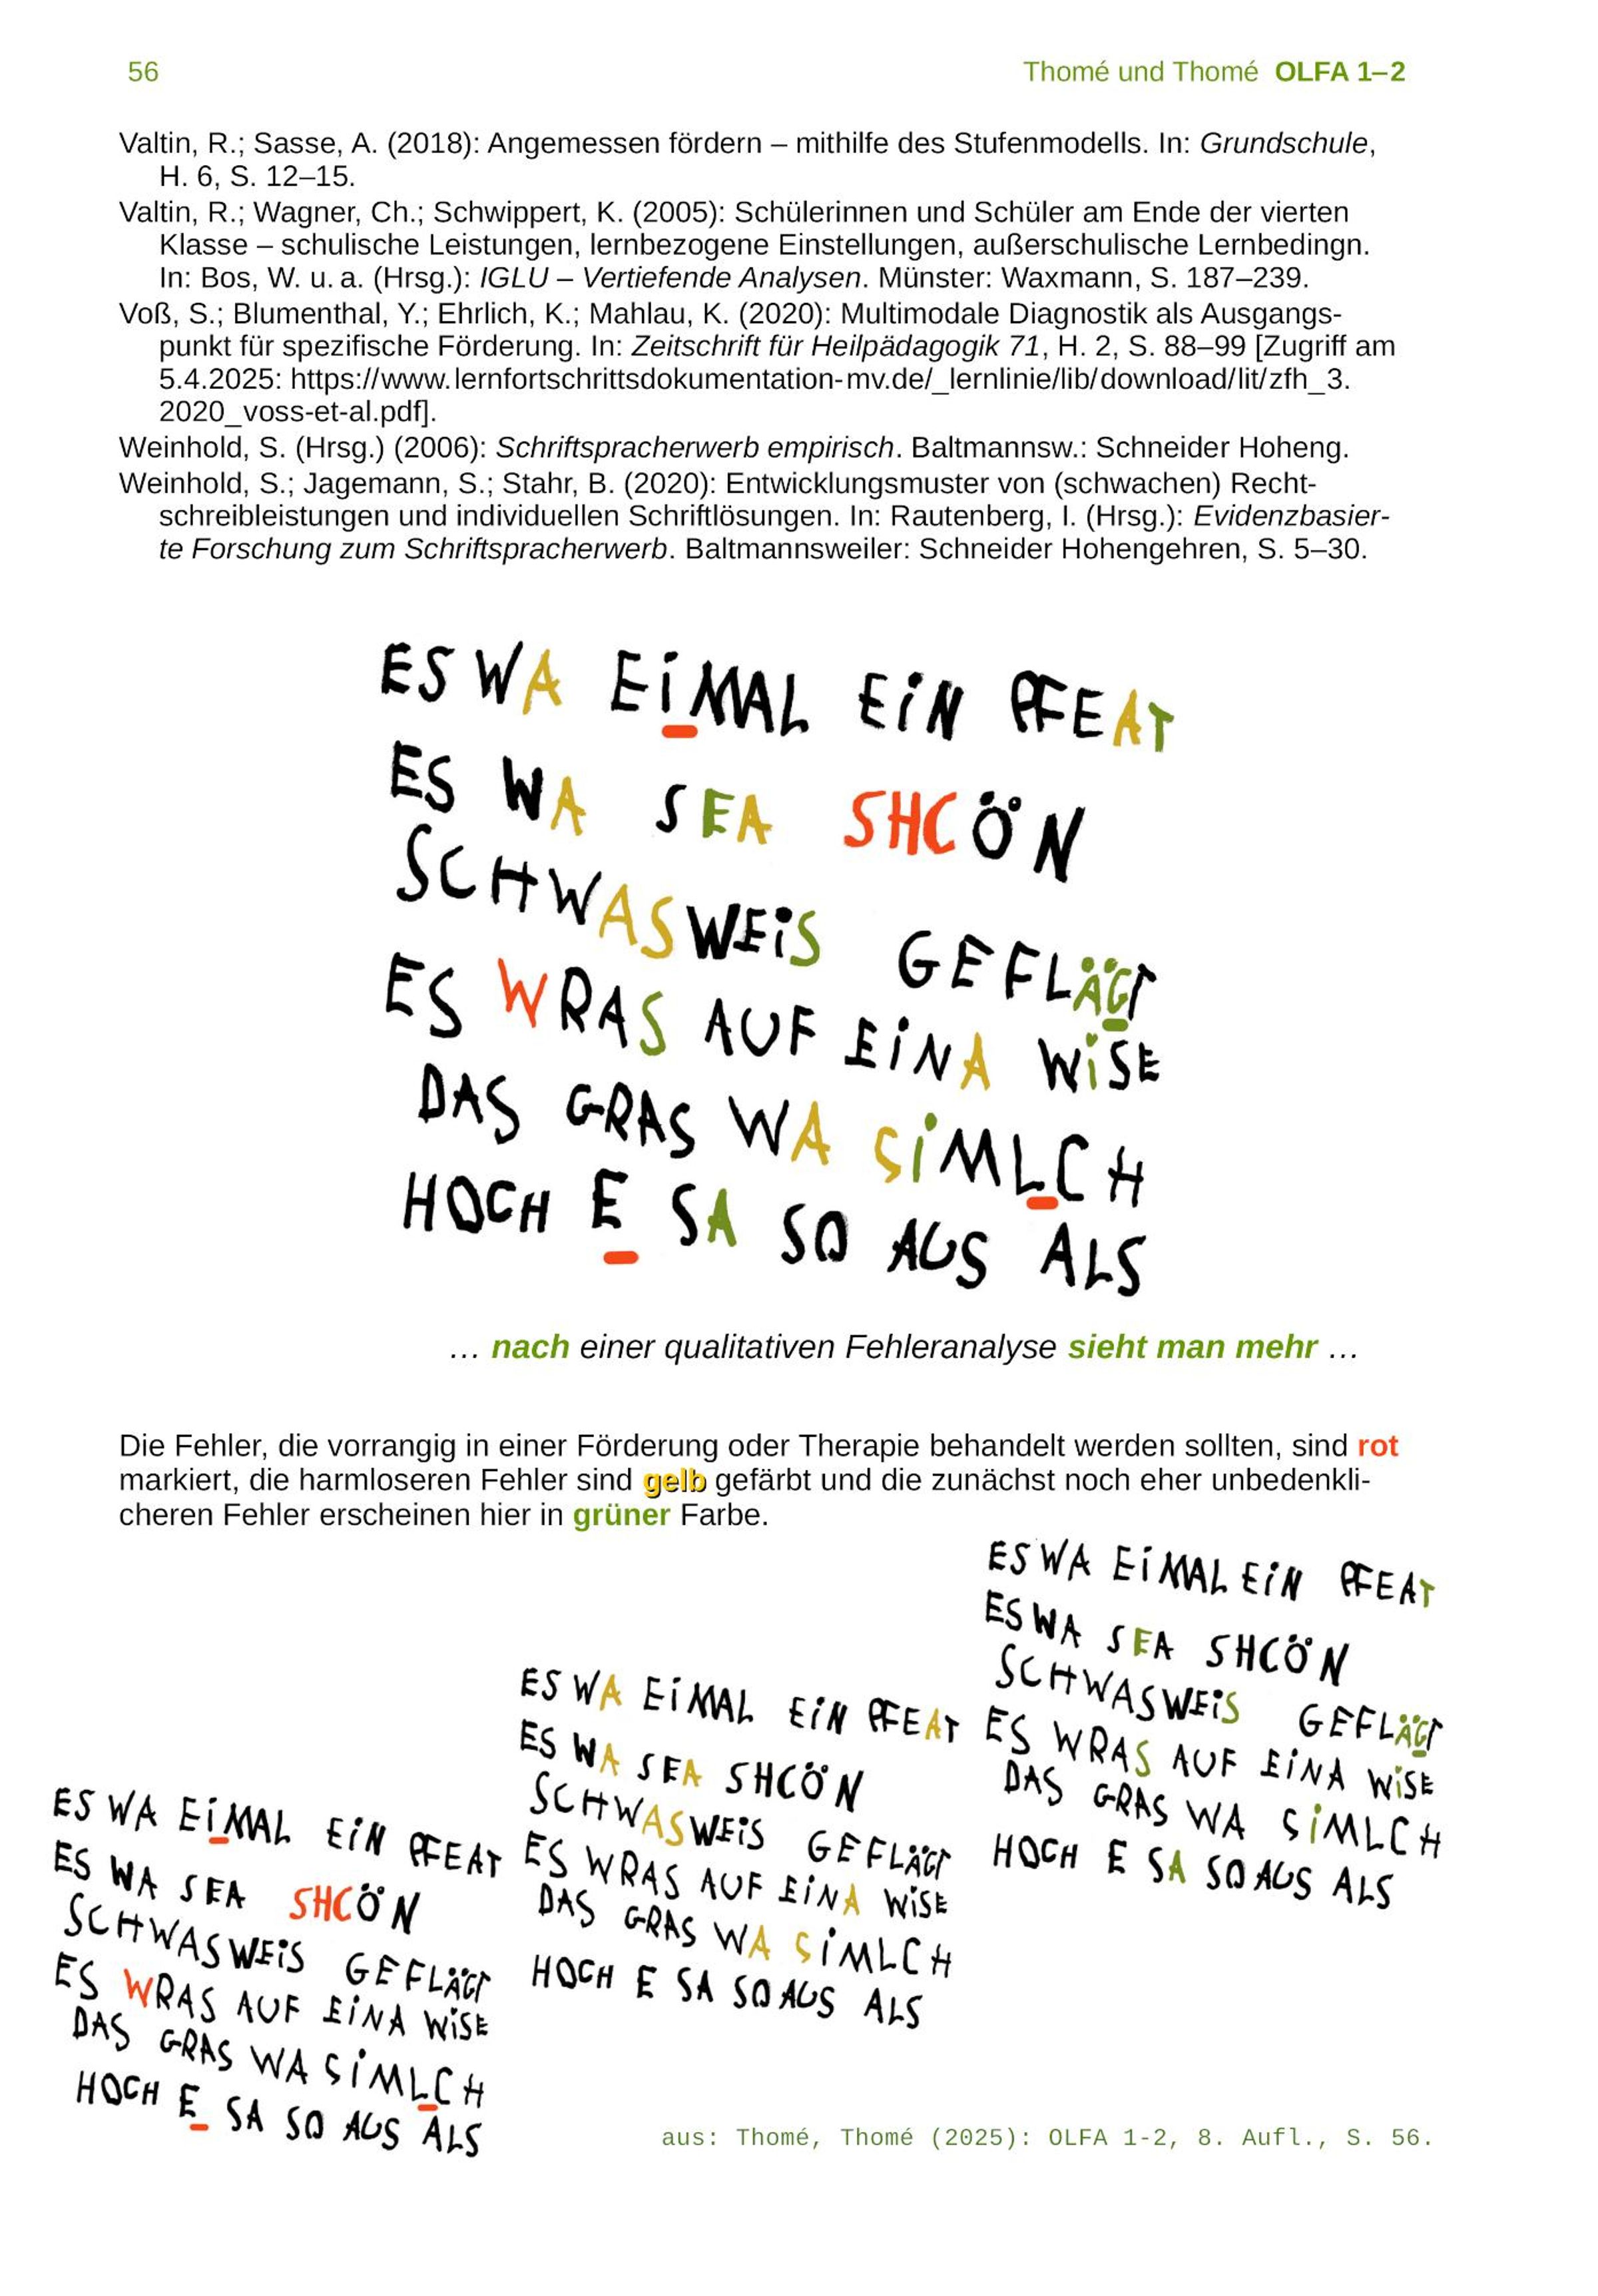 56 Thomé und Thomé OLFA 1–2
Valtin, R.; Sasse, A. (2018): Angemessen fördern – mithilfe des Stufenmodells. In: Grundschule,
H. 6, S. 12–15.
Valtin, R.; Wagner, Ch.; Schwippert, K. (2005): Schülerinnen und Schüler am Ende der vierten
Klasse – schulische Leistungen, lernbezogene Einstellungen, außerschulische Lernbedingn.
In: Bos, W. u. a. (Hrsg.): IGLU – Vertiefende Analysen. Münster: Waxmann, S. 187–239.
Voß, S.; Blumenthal, Y.; Ehrlich, K.; Mahlau, K. (2020): Multimodale Diagnostik als Ausgangs-
punkt für spezifische Förderung. In: Zeitschrift für Heilpädagogik 71, H. 2, S. 88–99 [Zugriff am
5.4.2025: https://www.lernfortschrittsdokumentation-mv.de/_lernlinie/lib/download/lit/zfh_3.
2020_voss-et-al.pdf].
Weinhold, S. (Hrsg.) (2006): Schriftspracherwerb empirisch. Baltmannsw.: Schneider Hoheng.
Weinhold, S.; Jagemann, S.; Stahr, B. (2020): Entwicklungsmuster von (schwachen) Recht-
schreibleistungen und individuellen Schriftlösungen. In: Rautenberg, I. (Hrsg.): Evidenzbasier-
te Forschung zum Schriftspracherwerb. Baltmannsweiler: Schneider Hohengehren, S. 5–30.
ES WA EiMAL EiN PFEAT
ES WA SEA SHCÖN
SCHWASWEiS GEFLÄGT
ES WRAS AUF EiNA WiSE
DAS GRAS WA SiMLCH
HOCH E SA SO AUS ALS
… nach einer qualitativen Fehleranalyse sieht man mehr …
Die Fehler, die vorrangig in einer Förderung oder Therapie behandelt werden sollten, sind rot
markiert, die harmloseren Fehler sind gelb gefärbt und die zunächst noch eher unbedenkli-
cheren Fehler erscheinen hier in grüner Farbe.
ES WA EiMAL EiN PFEAT
ES WA SEA SHCÖN
SCHWASWEiS GEFLÄGT
ES WRAS AUF EiNA WiSE
DAS GRAS WA SiMLCH
HOCH E SA SO AUS ALS
ES WA EiMAL EiN PFEAT
ES WA SEA SHCÖN
SCHWASWEiS GEFLÄGT
ES WRAS AUF EiNA WiSE
DAS GRAS WA SiMLCH
HOCH E SA SO AUS ALS
ES WA EiMAL EiN PFEAT
ES WA SEA SHCÖN
SCHWASWEiS GEFLÄGT
ES WRAS AUF EiNA WiSE
DAS GRAS WA SiMLCH
HOCH E SA SO AUS ALS
aus: Thomé, Thomé (2025): OLFA 1-2, 8. Aufl., S. 56.